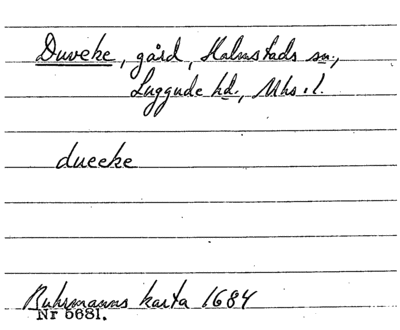 Duveke, gård, Halmstads sn.,
Luggude hd., Mhs. l.
dueeke
Buhrmanns karta 1684
Nr 5681.